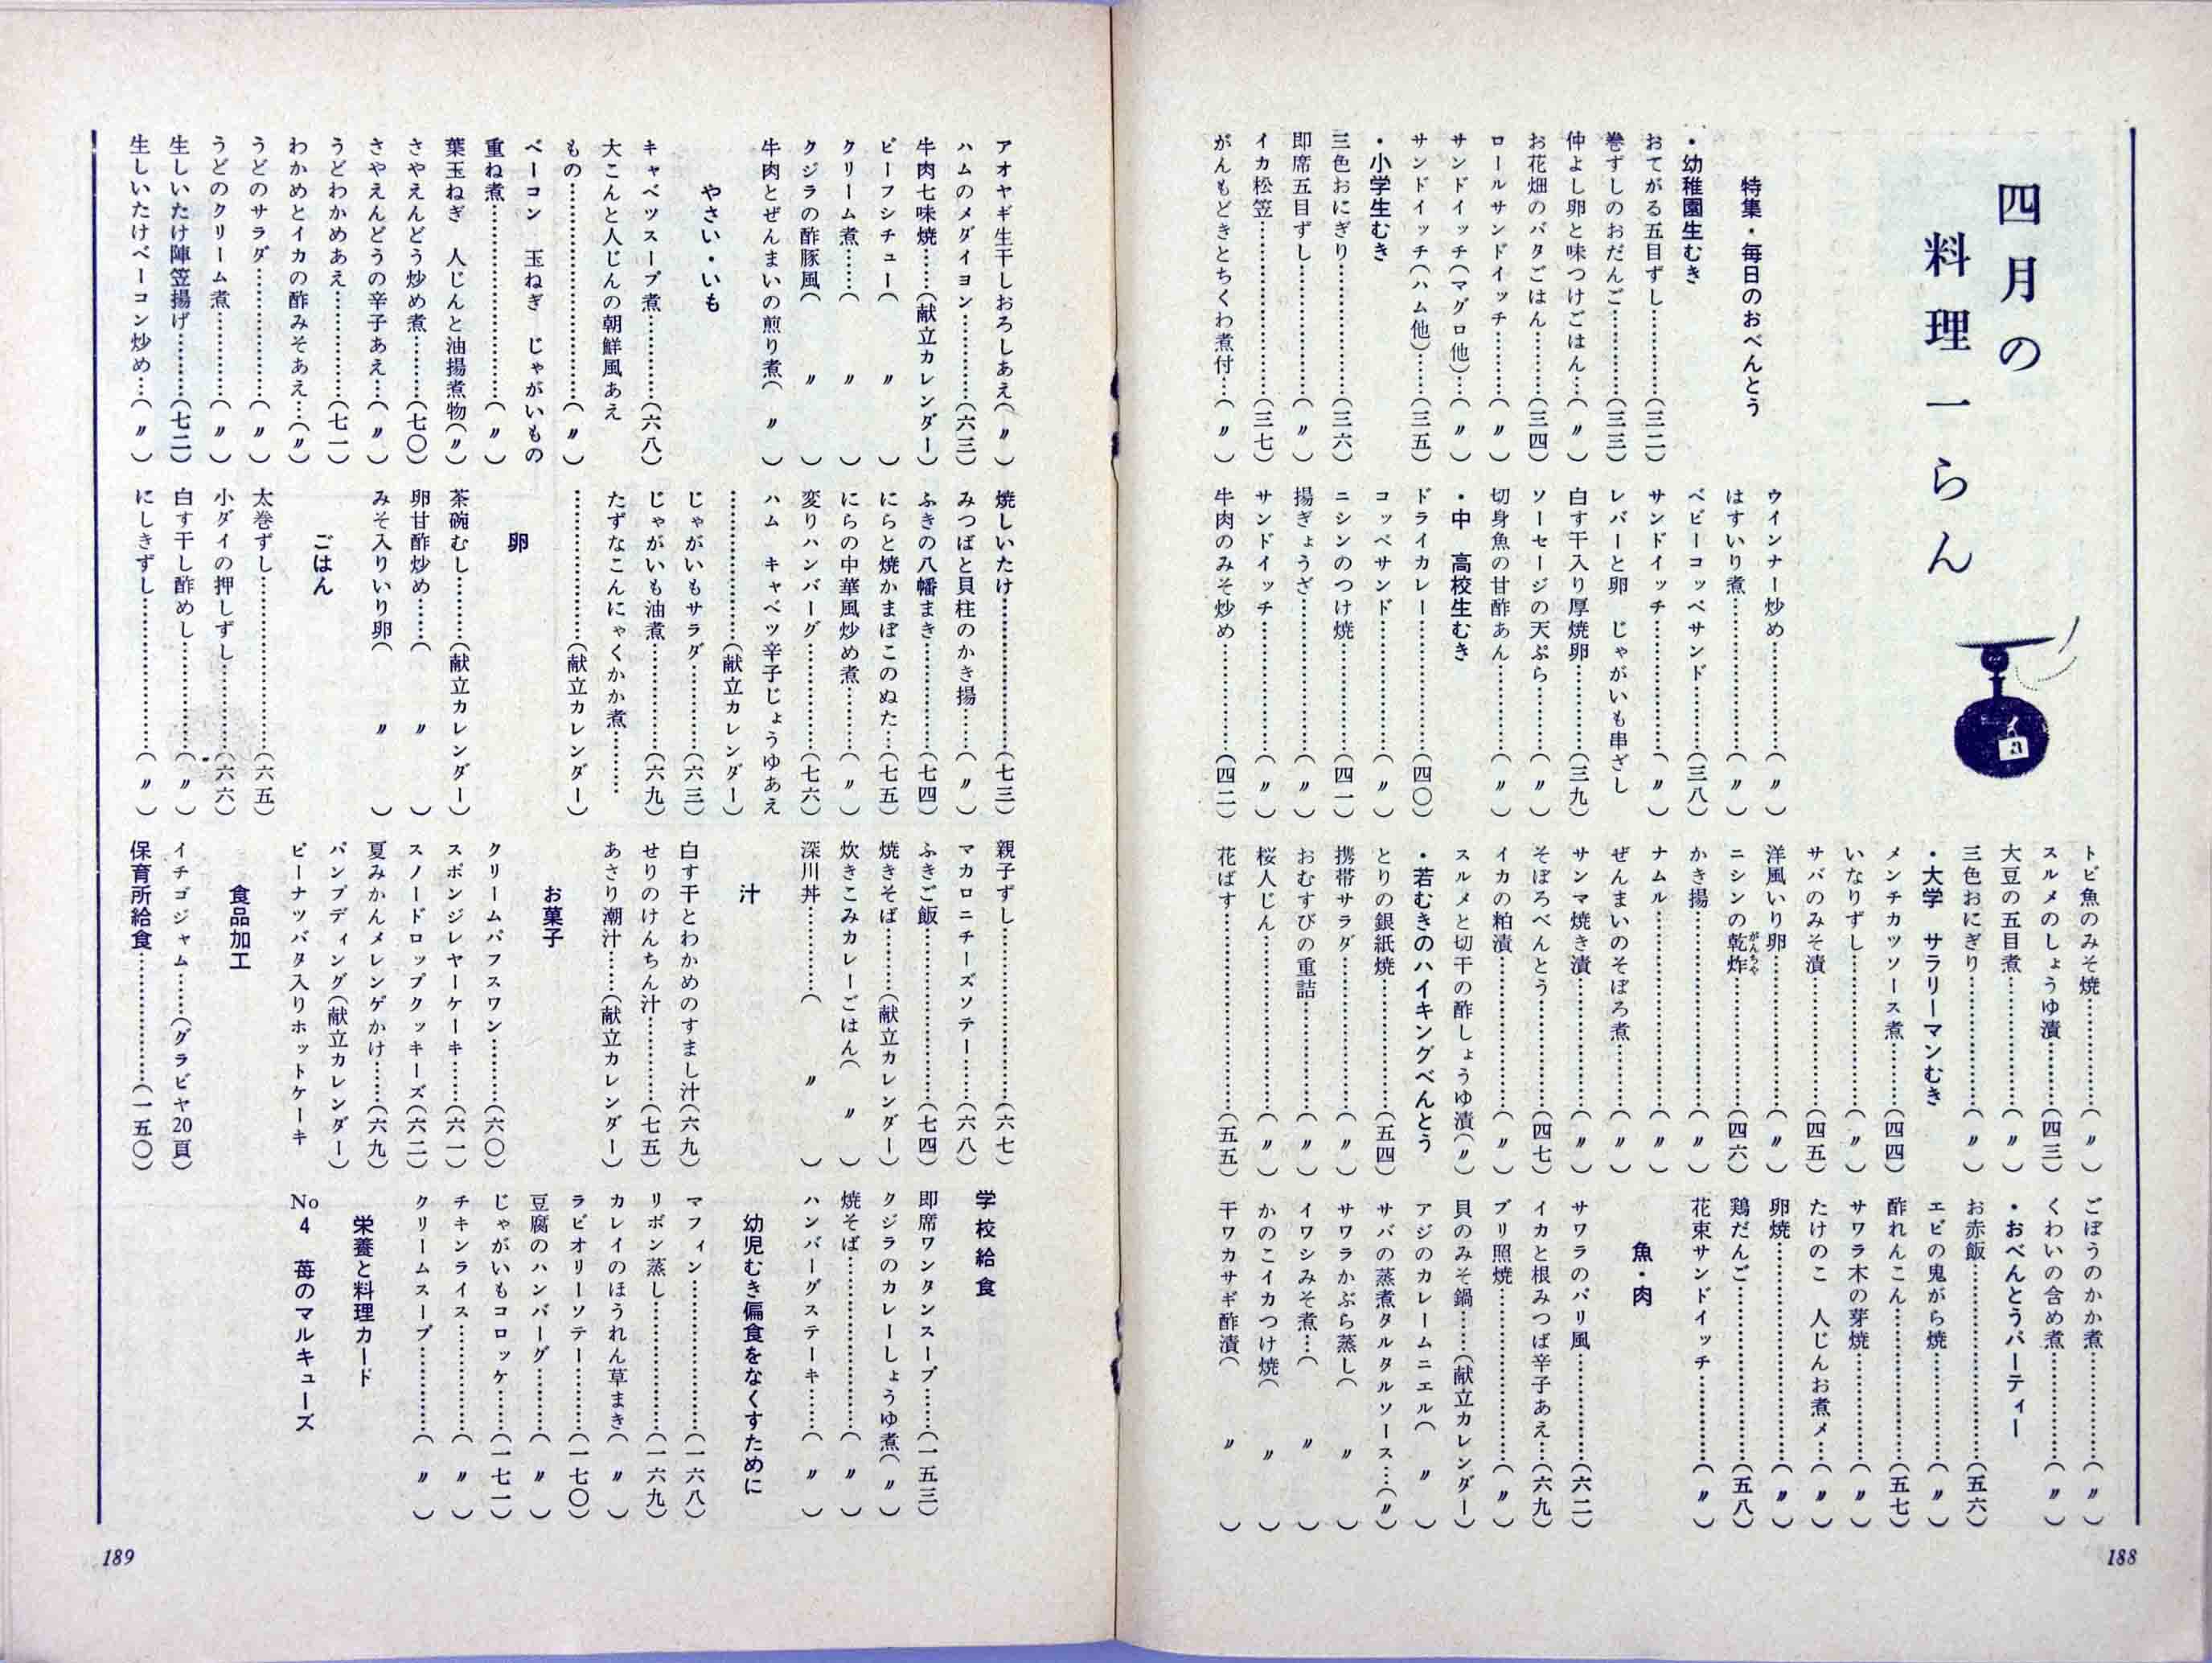 四月の
料理一らん
特集・毎日のおべんとう
・幼稚園生むき
おてがる五目ずし…………(三二)
巻ずしのおだんご…………(三三)
仲よし卵と味つけごはん…(〃)
お花畑のバタごはん………(三四)
ロールサンドイッチ………(〃)
サンドイッチ(マグロ他)…(〃)
サンドイッチ(ハム他)……(三五)
・小学生むき
三色おにぎり………………(三六)
即席五目ずし………………(〃)
イカ松笠……………………(三七)
がんもどきとちくわ煮付…(〃)
ウインナー炒め……………(〃)
はすいり煮…………………(〃)
ベビーコッペサンド………(三八)
サンドイッチ………………(〃)
レバーと卵 じゃがいも串ざし
白す干入り厚焼卵…………(三九)
ソーセージの天ぷら………(〃)
切身魚の甘酢あん…………(〃)
・中 高校生むき
ドライカレー………………(四〇)
コッペサンド………………(〃)
ニシンのつけ焼……………(四一)
揚ぎょうざ…………………(〃)
サンドイッチ………………(〃)
牛肉のみそ炒め……………(四二)
トビ魚のみそ焼……………(〃)
スルメのしょうゆ漬………(四三)
大豆の五目煮………………(〃)
三色おにぎり………………(〃)
・大学 サラリーマンむき
メンチカツソース煮………(四四)
いなりずし…………………(〃)
サバのみそ漬………………(四五)
洋風いり卵…………………(〃)
ニシンの乾炸がんちゃ……………(四六)
かき揚………………………(〃)
ナムル………………………(〃)
ぜんまいのそぼろ煮………(〃)
サンマ焼き漬………………(〃)
そぼろべんとう……………(四七)
イカの粕漬…………………(〃)
スルメと切干の酢しょうゆ漬(〃)
・若むきのハイキングべんとう
とりの銀紙焼………………(五四)
携帯サラダ…………………(〃)
おむすびの重詰……………(〃)
桜人じん……………………(〃)
花ばす………………………(五五)
ごぼうのかか煮……………(〃)
くわいの含め煮……………(〃)
・おべんとうパーティー
お赤飯………………………(五六)
エビの鬼がら焼……………(〃)
酢れんこん…………………(五七)
サワラ木の芽焼……………(〃)
たけのこ 人じんお煮〆…(〃)
卵焼…………………………(〃)
鶏だんご……………………(五八)
花束サンドイッチ…………(〃)
魚・肉
サワラのパリ風……………(六二)
イカと根みつば辛子あえ…(六九)
ブリ照焼……………………(〃)
貝のみそ鍋……(献立カレンダー)
アジのカレームニエル(〃)
サバの蒸煮タルタルソース…(〃)
サワラかぶら蒸し(〃)
イワシみそ煮…(〃)
かのこイカつけ焼(〃)
干ワカサギ酢漬(〃)
188
アオヤギ生干しおろしあえ(〃)
ハムのメダイヨン…………(六三)
牛肉七味焼……(献立カレンダー)
ビーフシチュー(〃)
クリーム煮……(〃)
クジラの酢豚風(〃)
牛肉とぜんまいの煎り煮(〃)
やさい・いも
キャベツスープ煮…………(六八)
大こんと人じんの朝鮮風あえ
もの…………………………(〃)
ベーコン 玉ねぎ じゃがいもの
重ね煮………………………(〃)
葉玉ねぎ 人じんと油揚煮物(〃)
さやえんどう炒め煮………(七〇)
さやえんどうの辛子あえ…(〃)
うどわかめあえ……………(七一)
わかめとイカの酢みそあえ…(〃)
うどのサラダ………………(〃)
うどのクリーム煮…………(〃)
生しいたけ陣笠揚げ………(七二)
生しいたけベーコン炒め…(〃)
焼しいたけ…………………(七三)
みつばと貝柱のかき揚……(〃)
ふきの八幡まき……………(七四)
にらと焼かまぼこのぬた…(七五)
にらの中華風炒め煮………(〃)
変りハンバーグ……………(七六)
ハム キャベツ辛子じょうゆあえ
………………(献立カレンダー)
じゃがいもサラダ…………(六三)
じゃがいも油煮……………(六九)
たずなこんにゃくかか煮………
………………(献立カレンダー)
卵
茶碗むし………(献立カレンダー)
卵甘酢炒め……(〃)
みそ入りいり卵(〃)
ごはん
太巻ずし……………………(六五)
小ダイの押しずし…………(六六)
白す干し酢めし……………(〃)
にしきずし…………………(〃)
親子ずし……………………(六七)
マカロニチーズソテー……(六八)
ふきご飯……………………(七四)
焼きそば………(献立カレンダー)
炊きこみカレーごはん(〃)
深川丼…………(〃)
汁
白す干とわかめのすまし汁(六九)
せりのけんちん汁…………(七五)
あさり潮汁……(献立カレンダー)
お菓子
クリームパフスワン………(六〇)
スポンジレヤーケーキ……(六一)
スノードロップクッキーズ(六二)
夏みかんメレンゲかけ……(六九)
パンプディング(献立カレンダー)
ピーナッツバタ入りホットケーキ
食品加工
イチゴジャム……(グラビヤ20頁)
保育所給食…………………(一五〇)
学校給食
即席ワンタンスープ……(一五三)
クジラのカレーしょうゆ煮(〃)
焼そば………………………(〃)
ハンバーグステーキ……(〃)
幼児むき偏食をなくすために
マフィン…………………(一六八)
リボン蒸し………………(一六九)
カレイのほうれん草まき(〃)
ラビオリーソテー………(一七〇)
豆腐のハンバーグ………(〃)
じゃがいもコロッケ……(一七一)
チキンライス……………(〃)
クリームスープ…………(〃)
栄養と料理カード
No4 苺のマルキューズ
189